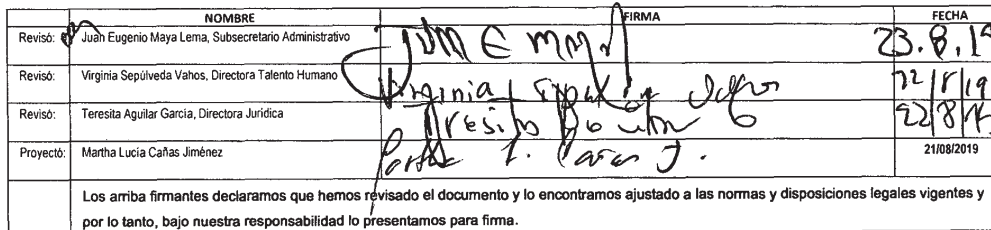 NOMBRE FIRMA FECHA
Revisó: Juan Eugenio Maya Lema, Subsecretario Administrativo 23.8.19
Revisó: Virginia Sepúlveda Vahos, Directora Talento Humano Virginia 22/8/19
Revisó: Teresita Aguilar García, Directora Jurídica
Proyectó: Martha Lucía Cañas Jiménez 21/08/2019
Los arriba firmantes declaramos que hemos revisado el documento y lo encontramos ajustado a las normas y disposiciones legales vigentes y
por lo tanto, bajo nuestra responsabilidad lo presentamos para firma.